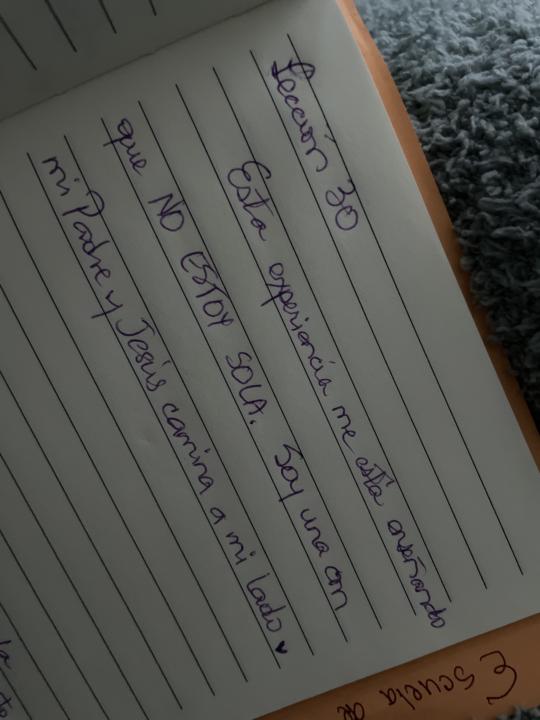 Lección 30
Esta experiencia me está enseñando
que NO ESTOY SOLA. Soy una con
mi Padre y Jesús camina a mi lado ♥
Escuela de
la